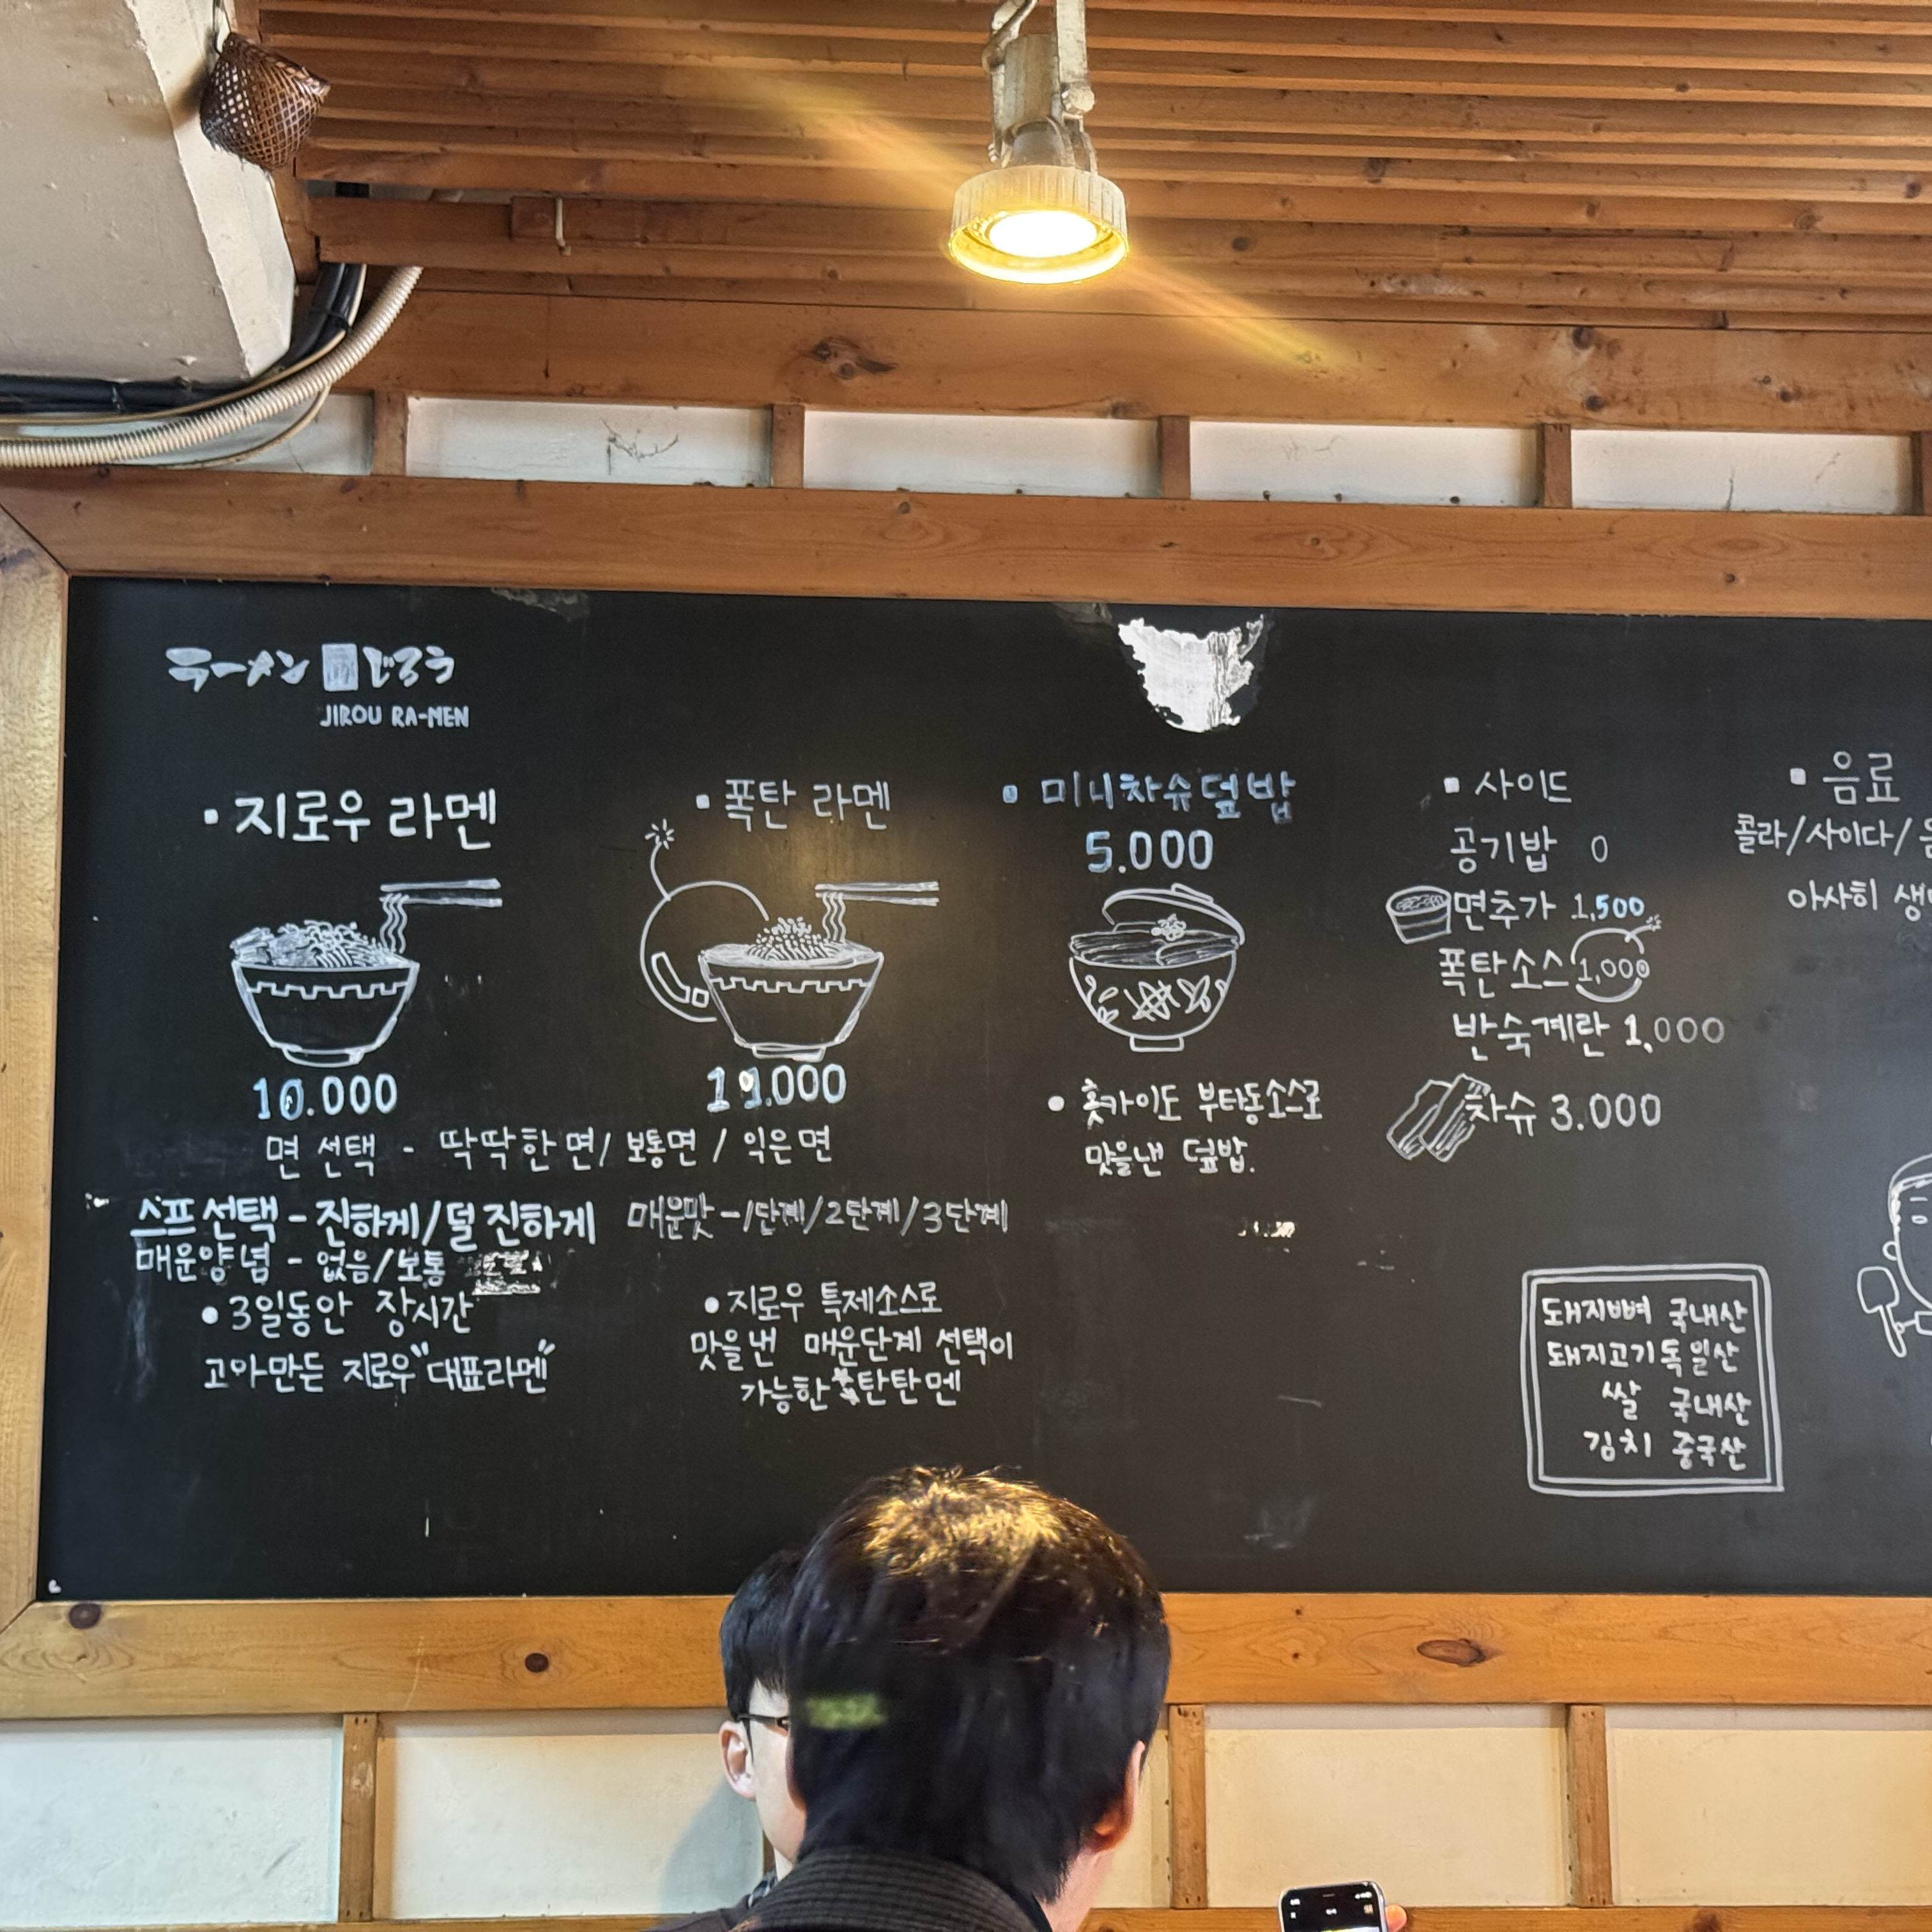 ラーメン じろう
JIROU RA-MEN
▪ 지로우 라멘
10.000
▪ 폭탄 라멘
11.000
면 선택 - 딱딱한면/ 보통면 / 익은면
스프 선택 - 진하게/덜 진하게
매운양념 - 없음/보통
매운맛 - 1단계/2단계/3단계
• 3일동안 장시간
고아만든 지로우 "대표라멘"
• 지로우 특제소스로
맛을낸 매운단계 선택이
가능한 탄탄멘
▪ 미니차슈덮밥
5.000
• 홋카이도 부타동소스로
맛을낸 덮밥.
▪ 사이드
공기밥 0
면추가 1,500
폭탄소스 1,000
반숙계란 1,000
차슈 3.000
▪ 음료
콜라/사이다/
아사히
돼지뼈 국내산
돼지고기 독일산
쌀 국내산
김치 중국산